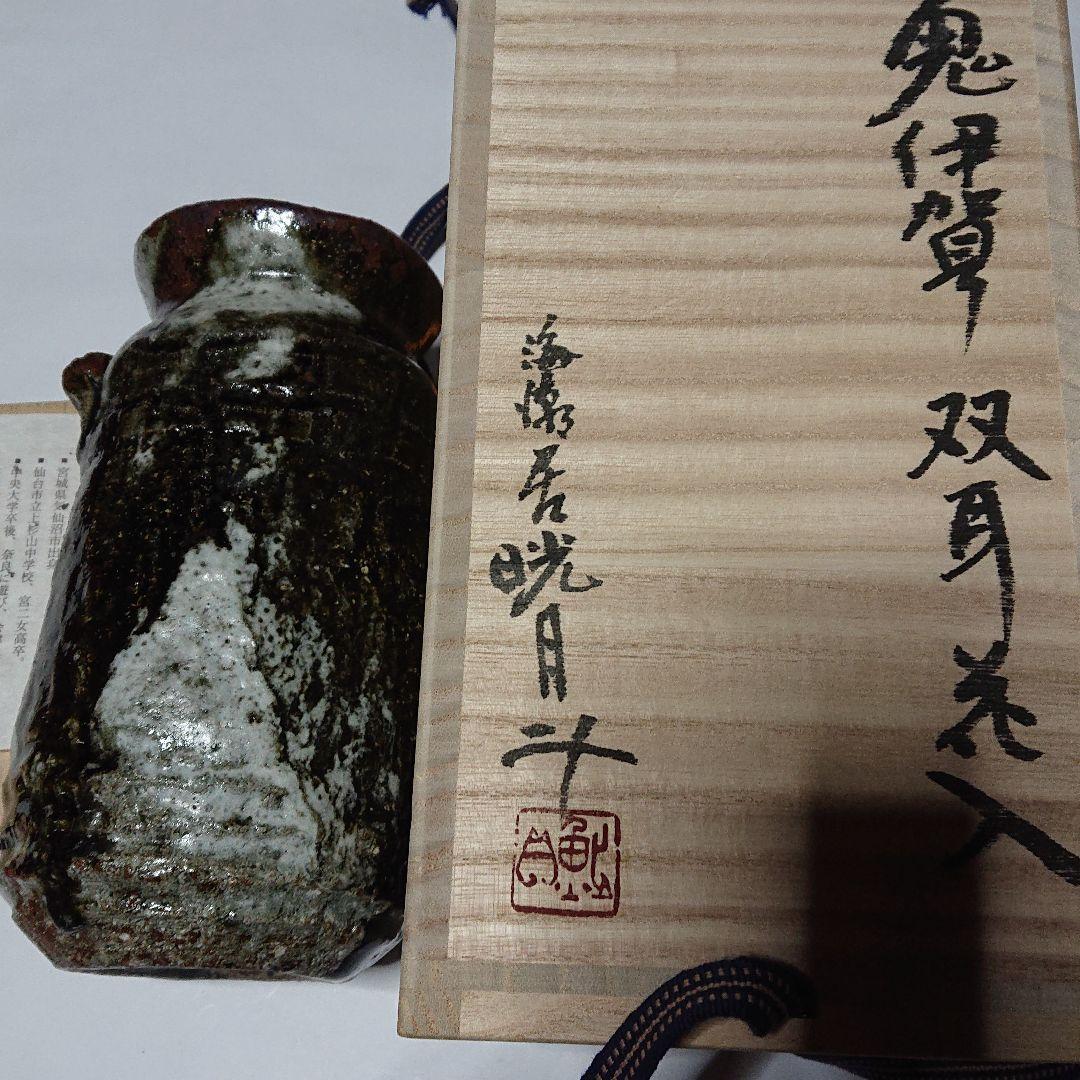 鬼伊賀 双耳花入
海潮居 晄月斗
宮城県気仙沼市出身
仙台市立上杉山中学校、宮二女高卒。
中央大学卒後、奈良に遊び、